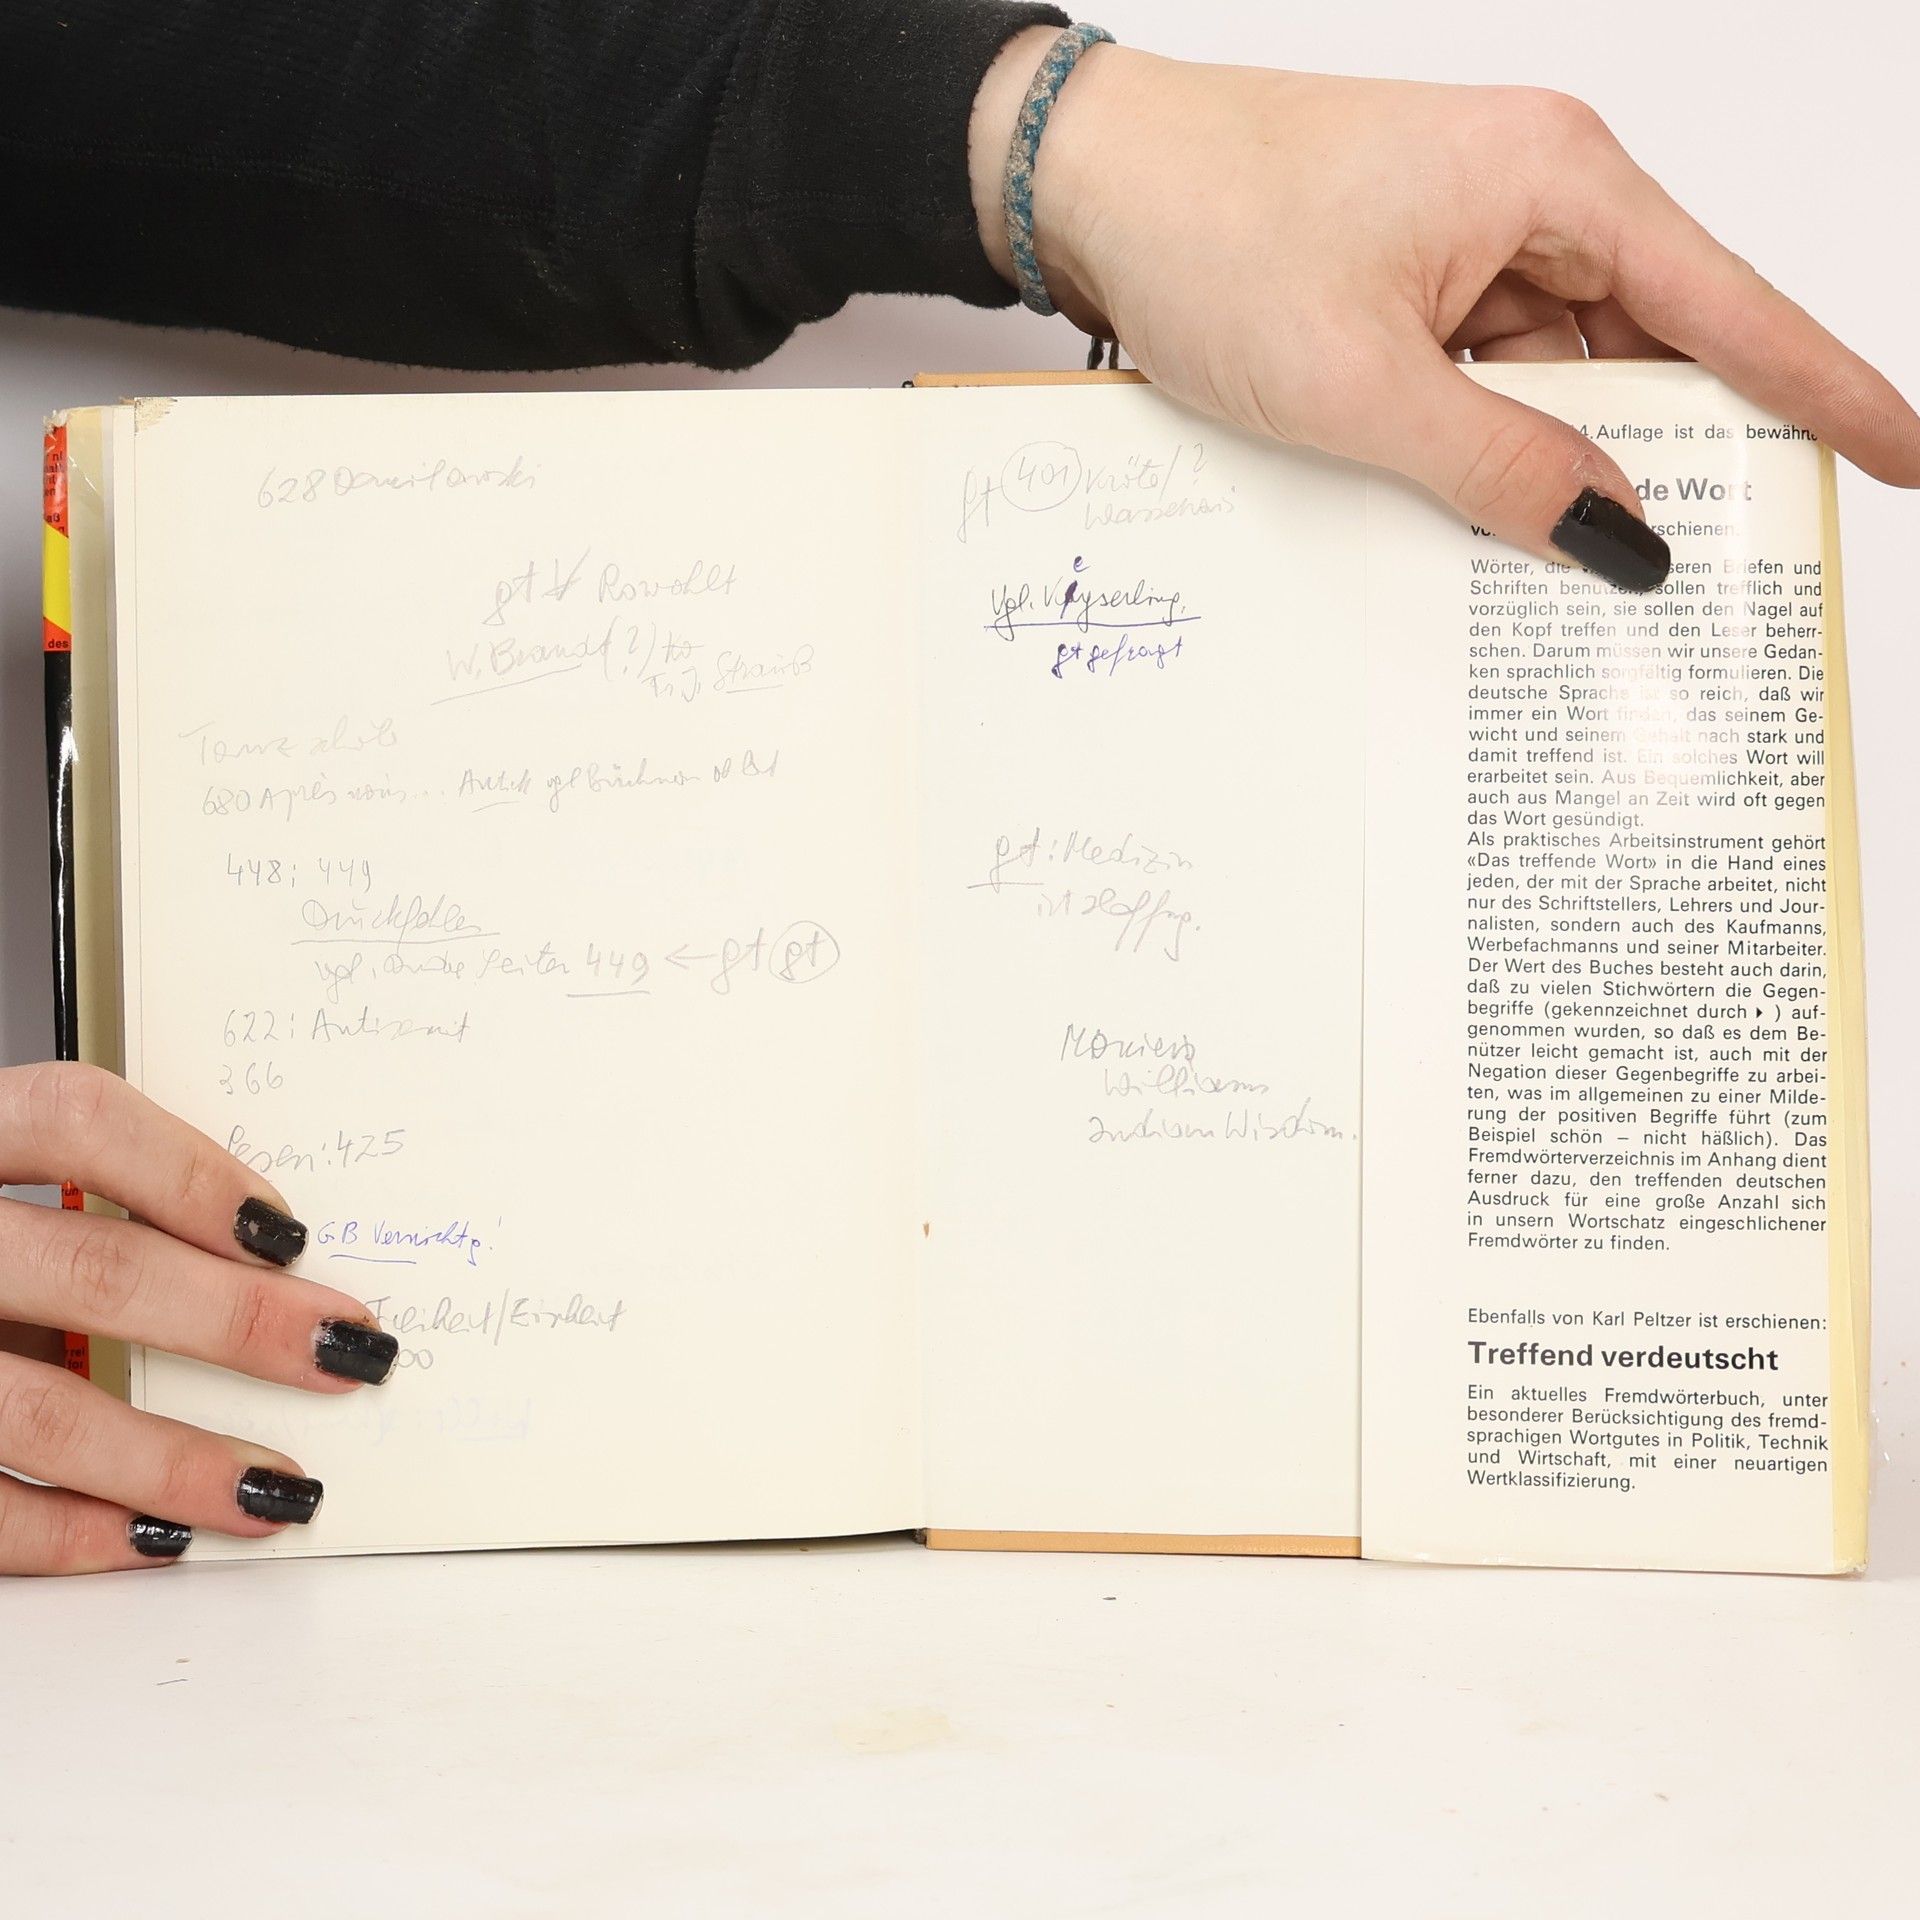 628 Danilowski
gt Rowohlt
W. Brandt (?)
F. J. Strauß
680 Après nous... Antik vgl Büchmann
448; 449
Druckfehler
vgl. Ende Seite 449 ← gt gt
622: Antisemit
366
Lesen: 425
GB Vernichtg.!
Freiheit/Einheit
00
gt 401 Kröte/?
vgl. Keyserling,
gt gefragt
gt: Medizin
ist Hoffng.
Monier
Williams
Indian Wisdom.
4. Auflage ist das bewährte
de Wort
erschienen.
Wörter, die seren Briefen und
Schriften benutzen, sollen trefflich und
vorzüglich sein, sie sollen den Nagel auf
den Kopf treffen und den Leser beherr-
schen. Darum müssen wir unsere Gedan-
ken sprachlich sorgfältig formulieren. Die
deutsche Sprache ist so reich, daß wir
immer ein Wort finden, das seinem Ge-
wicht und seinem Gehalt nach stark und
damit treffend ist. Ein solches Wort will
erarbeitet sein. Aus Bequemlichkeit, aber
auch aus Mangel an Zeit wird oft gegen
das Wort gesündigt.
Als praktisches Arbeitsinstrument gehört
«Das treffende Wort» in die Hand eines
jeden, der mit der Sprache arbeitet, nicht
nur des Schriftstellers, Lehrers und Jour-
nalisten, sondern auch des Kaufmanns,
Werbefachmanns und seiner Mitarbeiter.
Der Wert des Buches besteht auch darin,
daß zu vielen Stichwörtern die Gegen-
begriffe (gekennzeichnet durch ▸ ) auf-
genommen wurden, so daß es dem Be-
nützer leicht gemacht ist, auch mit der
Negation dieser Gegenbegriffe zu arbei-
ten, was im allgemeinen zu einer Milde-
rung der positiven Begriffe führt (zum
Beispiel schön – nicht häßlich). Das
Fremdwörterverzeichnis im Anhang dient
ferner dazu, den treffenden deutschen
Ausdruck für eine große Anzahl sich
in unsern Wortschatz eingeschlichener
Fremdwörter zu finden.
Ebenfalls von Karl Peltzer ist erschienen:
Treffend verdeutscht
Ein aktuelles Fremdwörterbuch, unter
besonderer Berücksichtigung des fremd-
sprachigen Wortgutes in Politik, Technik
und Wirtschaft, mit einer neuartigen
Wertklassifizierung.
des